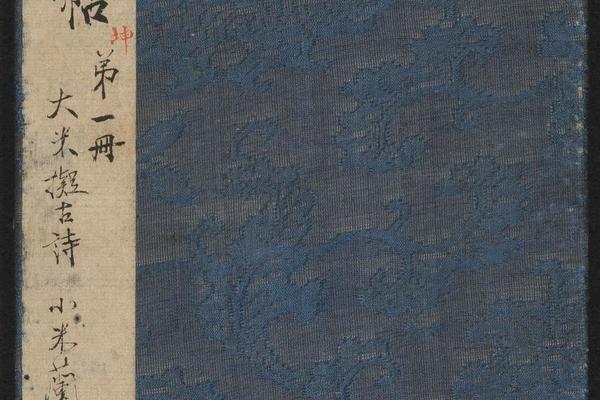 帖 坤
第一冊
大米擬古詩 小米蘭